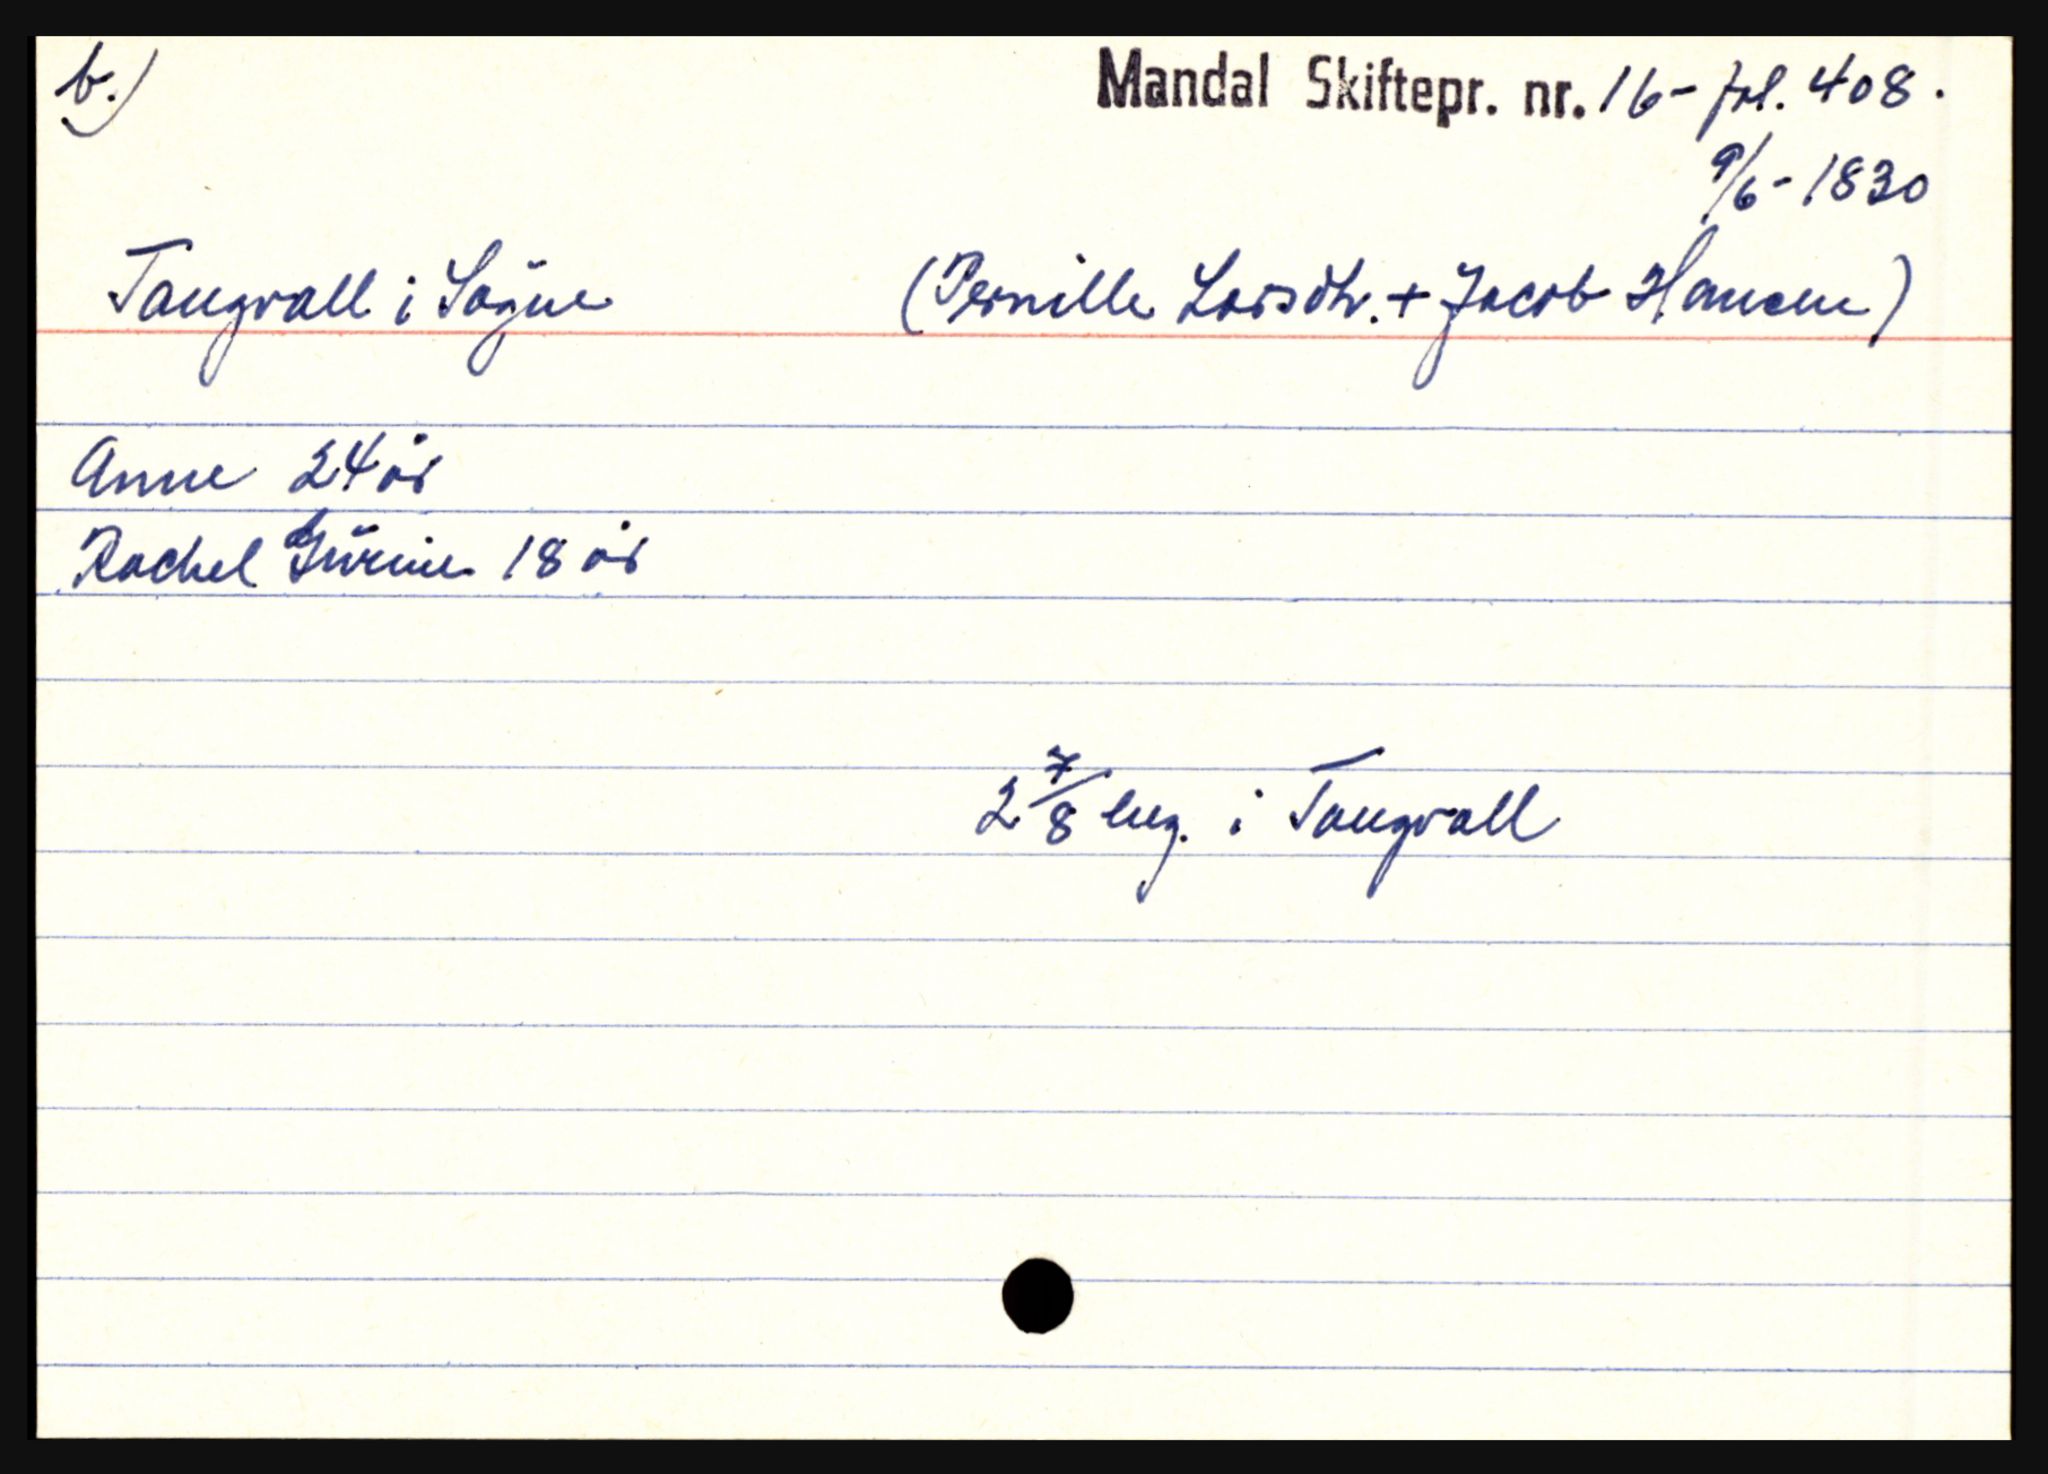 b.)
Mandal Skiftepr. nr. 16 - fol. 408.
9/6 - 1830
Tangvall i Søgne (Pernille Larsdtr. + Jacob Hansen)
Anne 24 år
Rachel 18 år
2 7/8 eng. i Tangvall